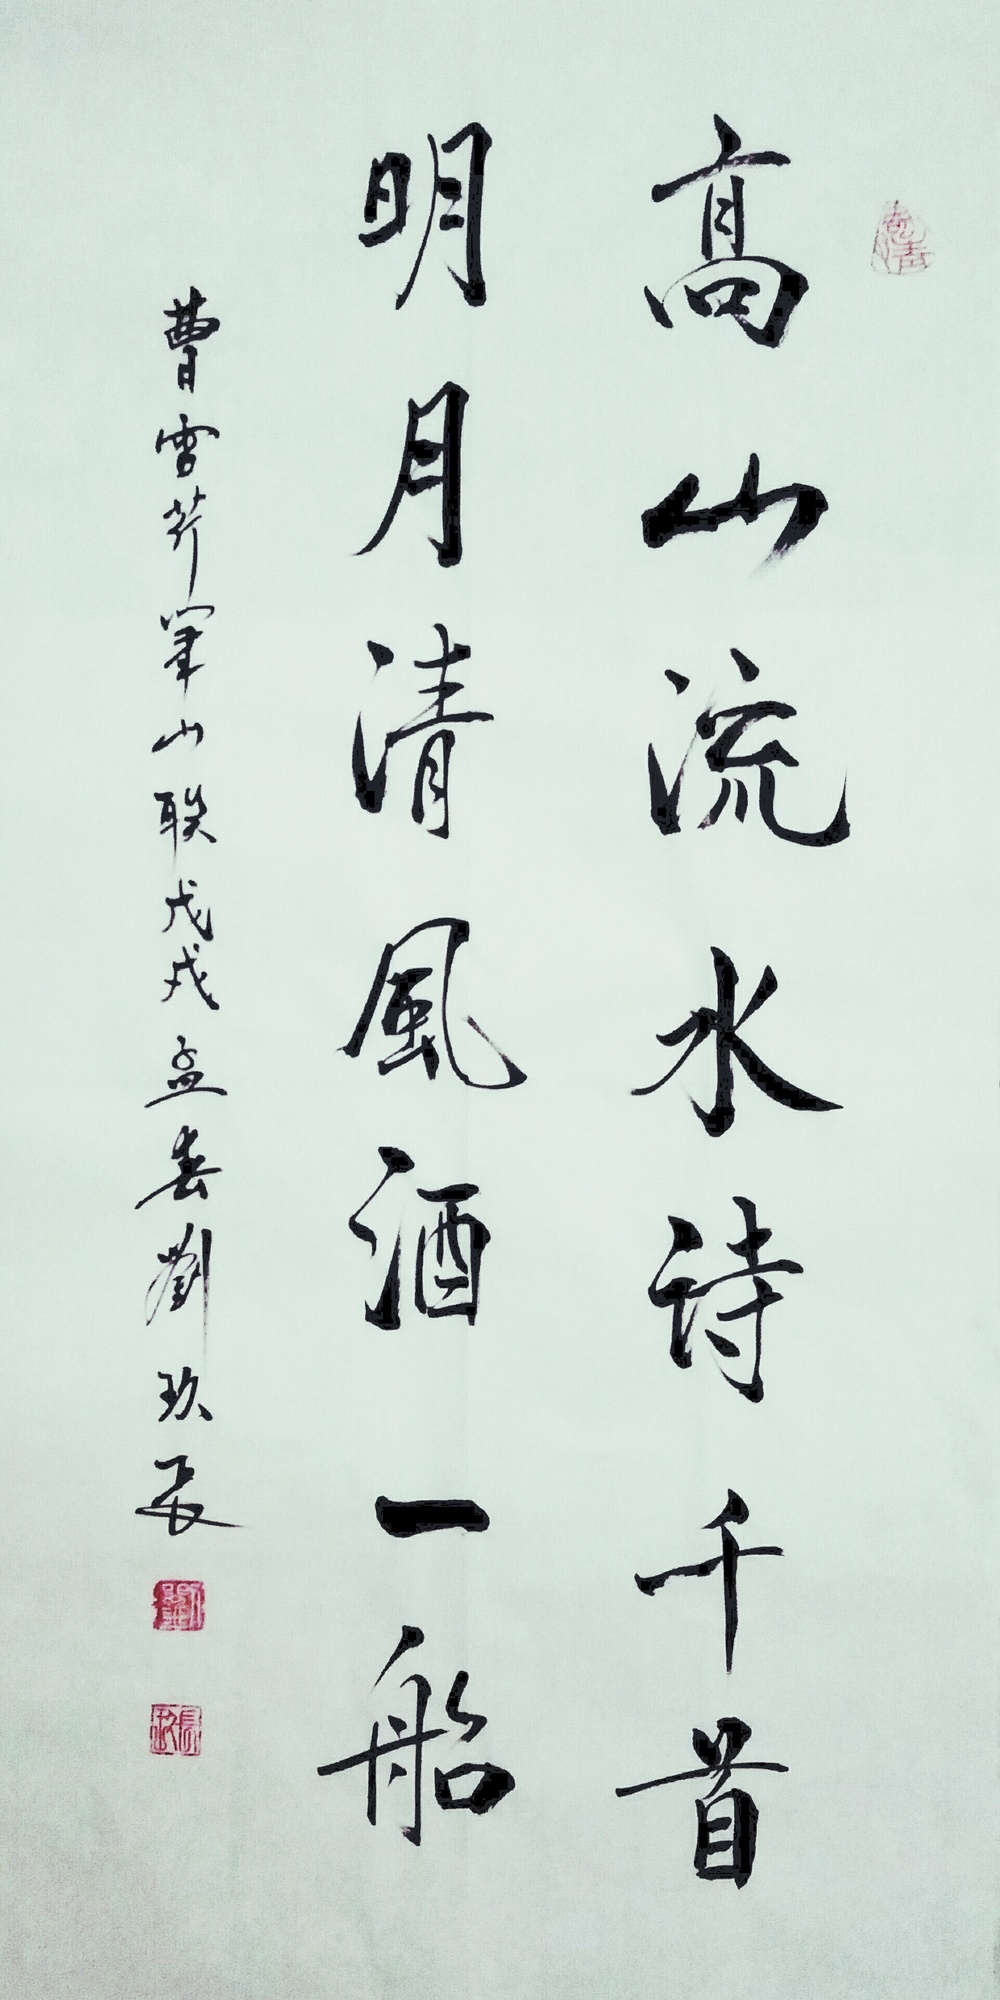 高山流水诗千首
明月清風酒一船
曹雪芹筆山联戊戌孟春劉玖長